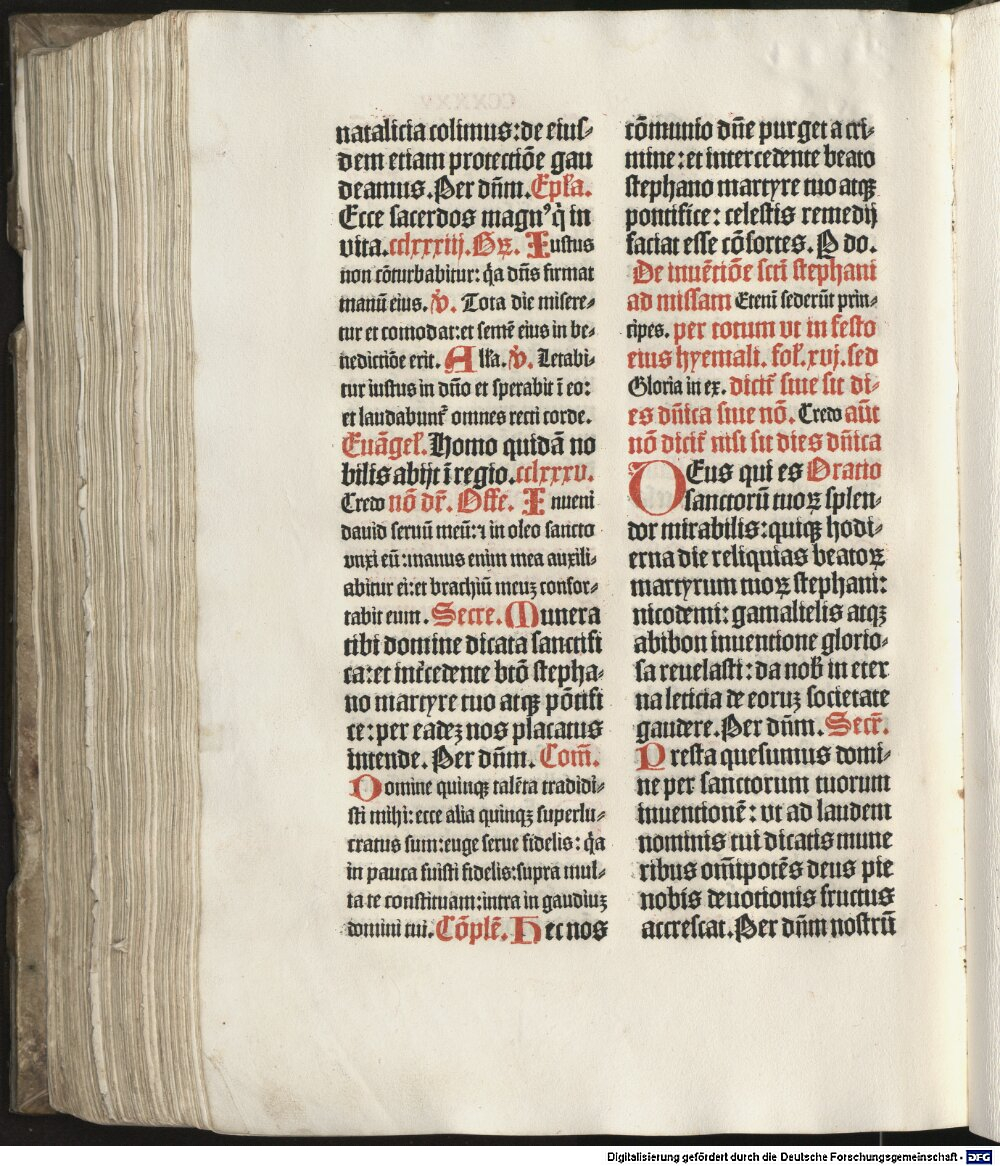 natalicia colimus: de eius-
dem etiam protectiõe gau
deamus. Per dñm. Epła.
Ecce sacerdos magn⁹ q̇ in
vita. cclxxxiij. Gꝝ. Iustus
non cõturbabitur: q̃a dñs firmat
manũ eius. v̾. Tota die misere-
tur et comodat: et semẽ eius in be-
nedictiõe erit. Alła. v̾. Letabi-
tur iustus in dño et sperabit ĩ eo:
et laudabunt᷑ omnes recti corde.
Euãgeł. Homo quidã no
bilis abijt ĩ regio. cclxxxv.
Credo nõ dr̃. Offe. Inueni
dauid seruũ meũ: ⁊ in oleo sancto
vnxi eũ: manus enim mea auxili-
abitur ei: et brachiũ meuꝫ confor-
tabit eum. Secre. Munera
tibi domine dicata sanctifi
ca: et int̾cedente btõ stepha-
no martyre tuo atqꝫ põtifi
ce: per eadeꝫ nos placatus
intende. Per dñm. Com̃.
Domine quinqꝫ talẽta tradidi-
sti mihi: ecce alia quinqꝫ superlu-
cratus sum: euge serue fidelis: q̃a
in pauca fuisti fidelis: supra mul-
ta te constituam: intra in gaudiuꝫ
domini tui. Cõplẽ. Hec nos
cõmunio dñe purget a cri-
mine: et intercedente beato
stephano martyre tuo atqꝫ
pontifice: celestis remedij
faciat esse cõsortes. P do.
De inuẽtiõe scti stephani
ad missam Etenĩ sederũt prin-
cipes. per totum vt in festo
eius hyemali. foł. xvj. sed
Gloria in ex. dicit᷑ siue sit di-
es dñica siue nõ. Credo aũt
nõ dicit᷑ nisi sit dies dñica
DEus qui es Oratio
sanctorũ tuoꝝ splen-
dor mirabilis: quiqꝫ hodi-
erna die reliquias beatoꝝ
martyrum tuoꝝ stephani:
nicodemi: gamalielis atqꝫ
abibon inuentione glorio-
sa reuelasti: da nob̃ in eter
na leticia de eoruꝫ societate
gaudere. Per dñm. Secr̃.
Presta quesumus domi-
ne per sanctorum tuorum
inuentionẽ: vt ad laudem
nominis tui dicatis mune
ribus om̃ipotẽs deus pie
nobis deuotionis fructus
accrescat. Per dñm nostrũ
Digitalisierung gefördert durch die Deutsche Forschungsgemeinschaft - DFG